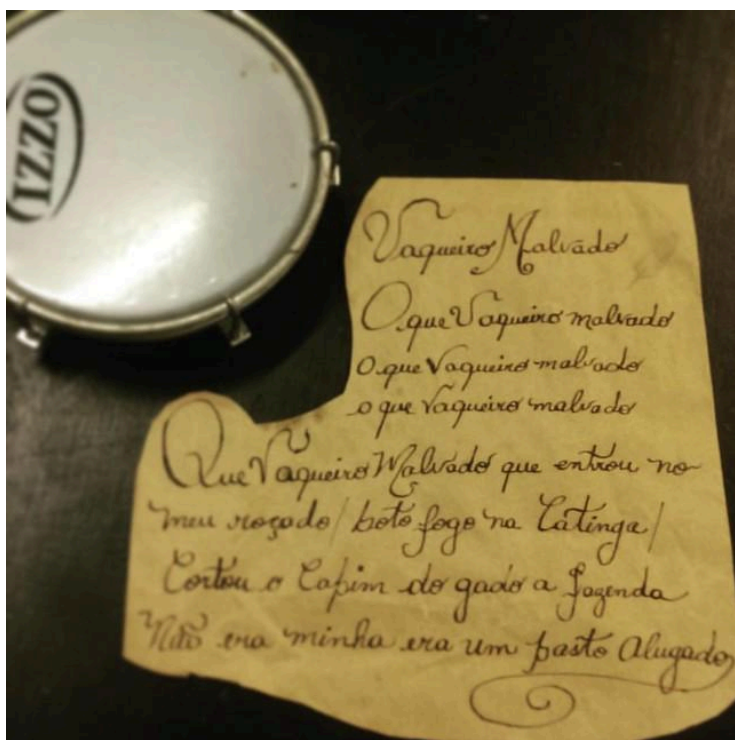 IZZO
Vaqueiro Malvado
O que Vaqueiro malvado
O que Vaqueiro malvado
o que Vaqueiro malvado
Que Vaqueiro Malvado que entrou no
meu roçado / boto fogo na Catinga /
Cortou o Capim do gado a fazenda
Não era minha era um pasto Alugado